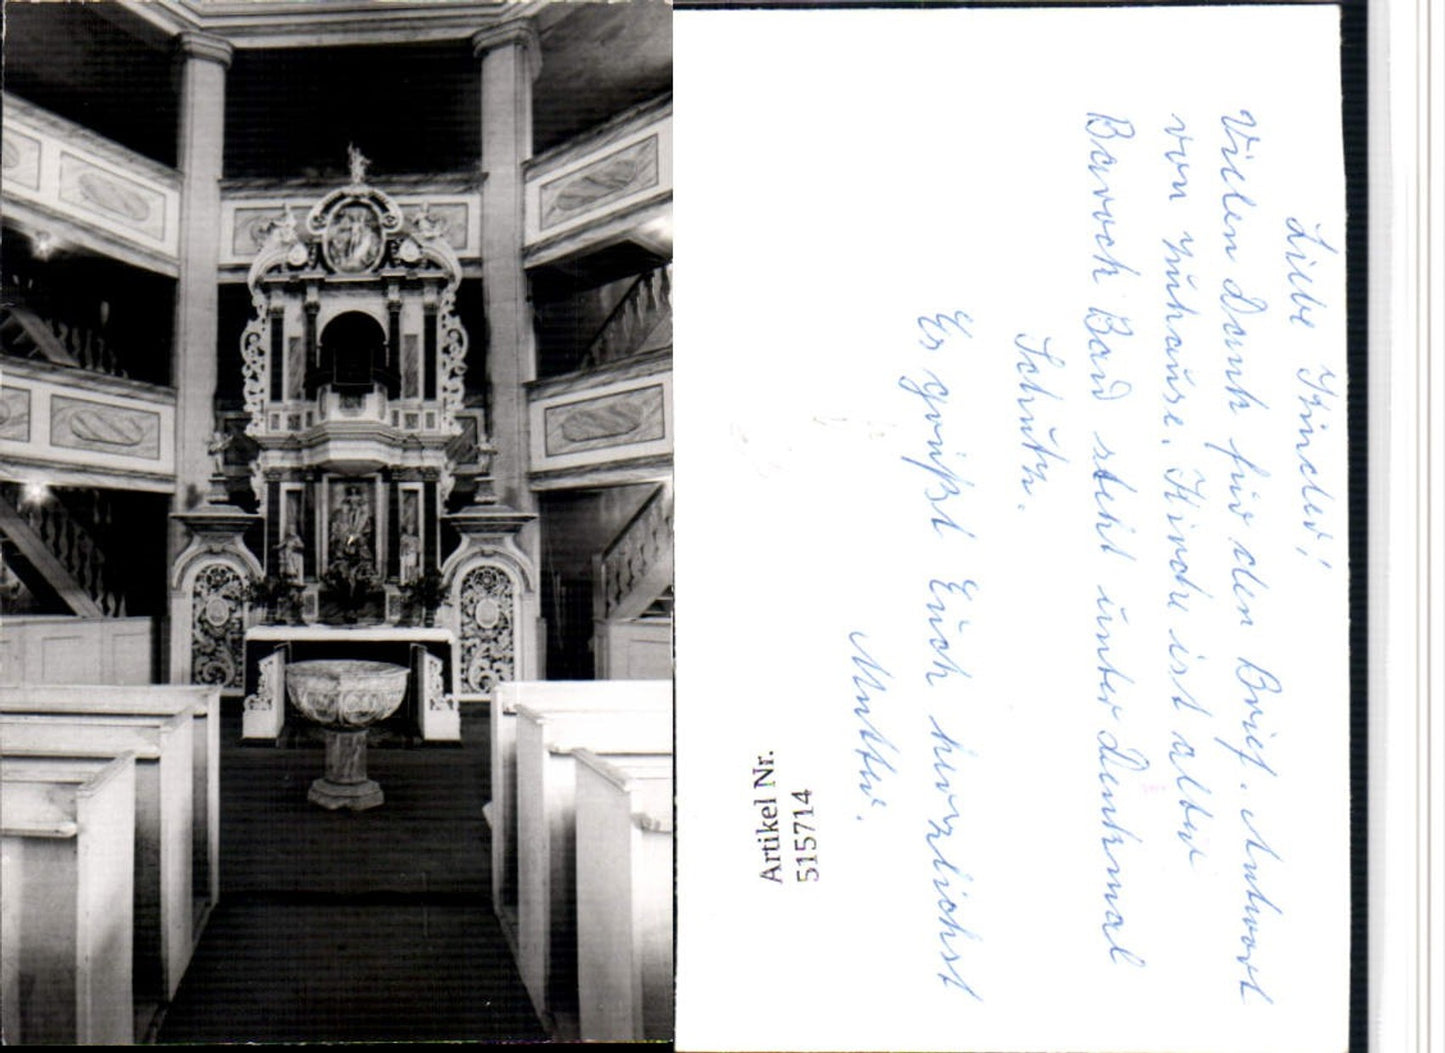 Liebe Kinder!
Vielen Dank für den Brief. Antwort
von zuhause. Kirche ist alter
Barock Bau steht unter Denkmal
Schutz.
Es grüßt Euch herzlichst
Mutter.
Artikel Nr.
515714